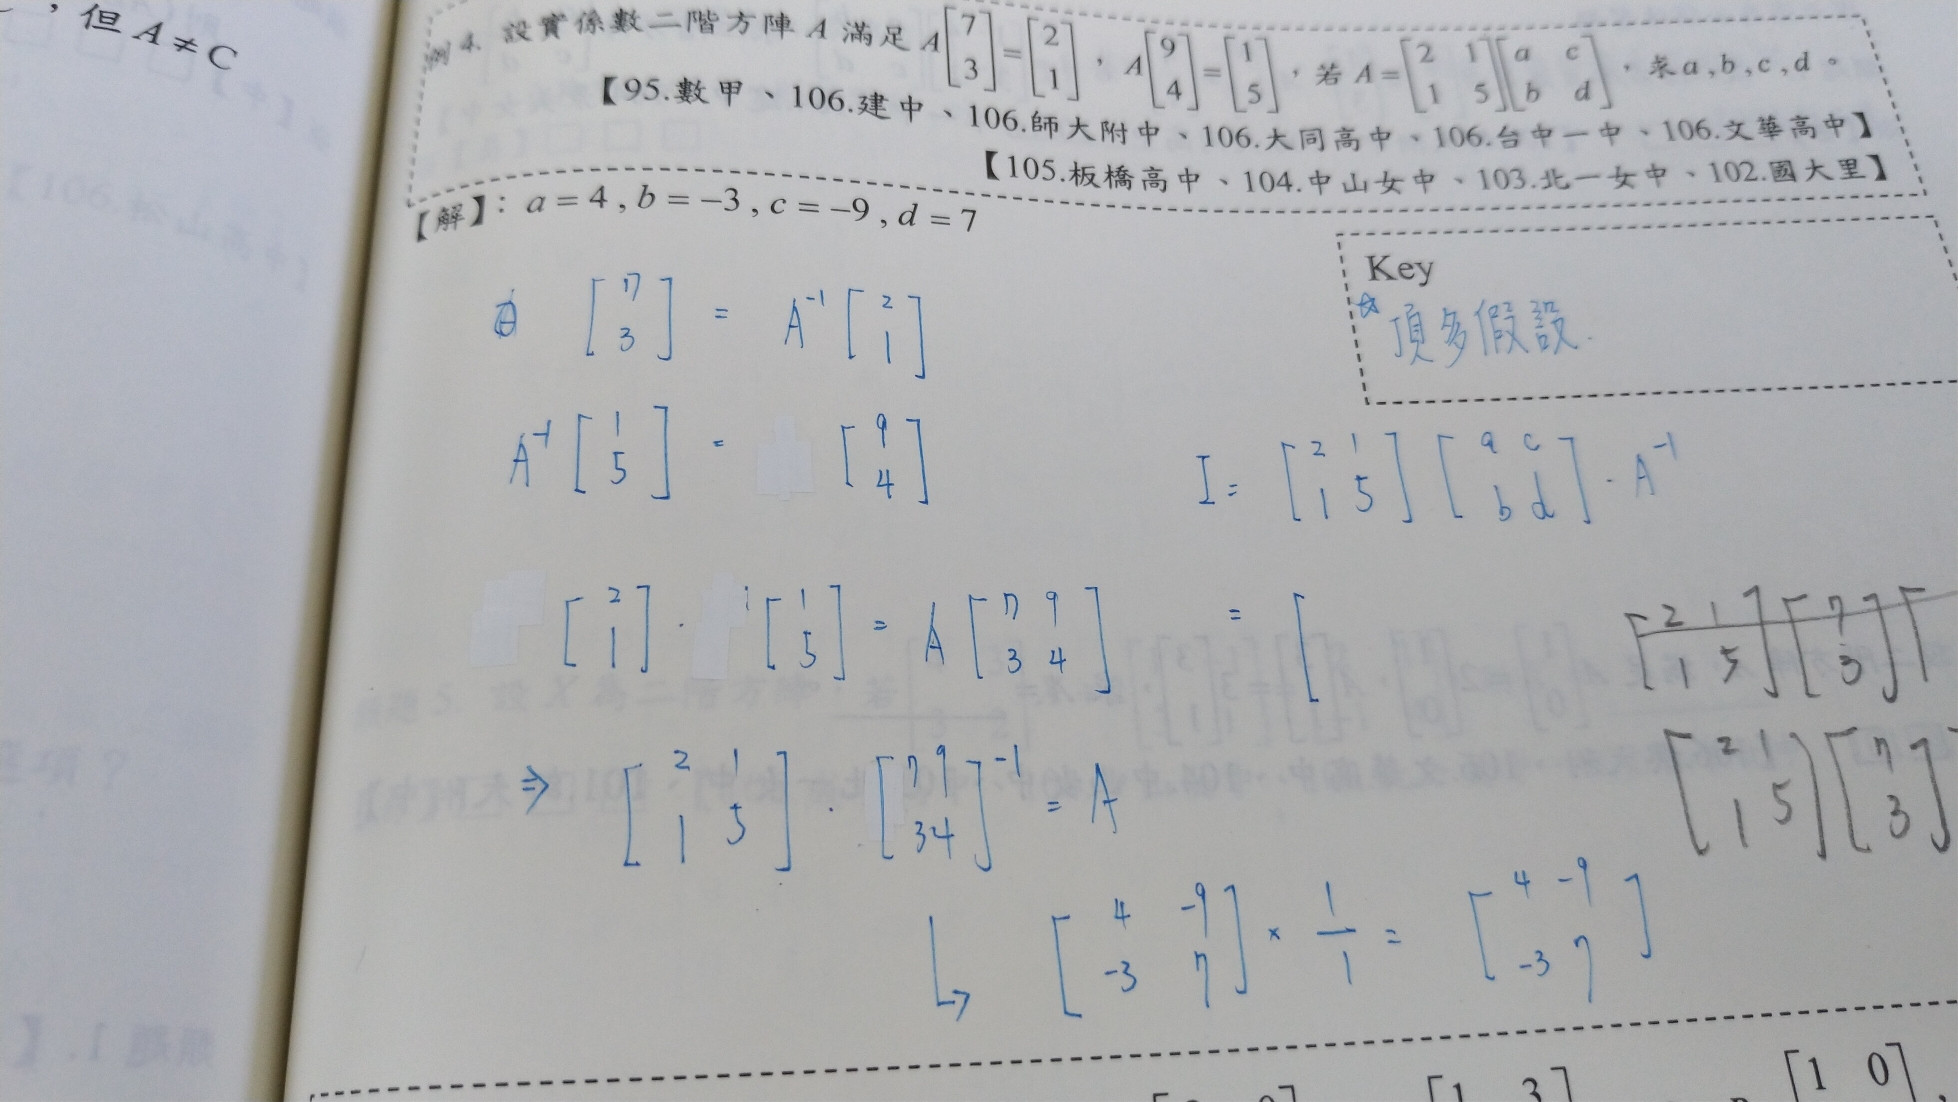 ，但 A ≠ C
例 4. 設實係數二階方陣 A 滿足 A[7 3] = [2 1]，A[9 4] = [1 5]，若 A = [2 1 1 5][a c b d]，求 a , b , c , d。
【95.數甲、106.建中、106.師大附中、106.大同高中、106.台中一中、106.文華高中】
【105.板橋高中、104.中山女中、103.北一女中、102.國大里】
【解】: a = 4 , b = −3 , c = −9 , d = 7
Key
頂多假設.
[7 3] = A⁻¹ [2 1]
A⁻¹ [1 5] = [9 4]
I = [2 1 1 5] [a c b d] · A⁻¹
[2 1] · [1 5] = A [7 9 3 4]
= [
[2 1 1 5] [7 3] [
⇒ [2 1 1 5] · [7 9 3 4]⁻¹ = A
[2 1 1 5] [7 3]
↳ [4 −9 −3 7] × 1/1 = [4 −9 −3 7]
[1 3]
[1 0] ,